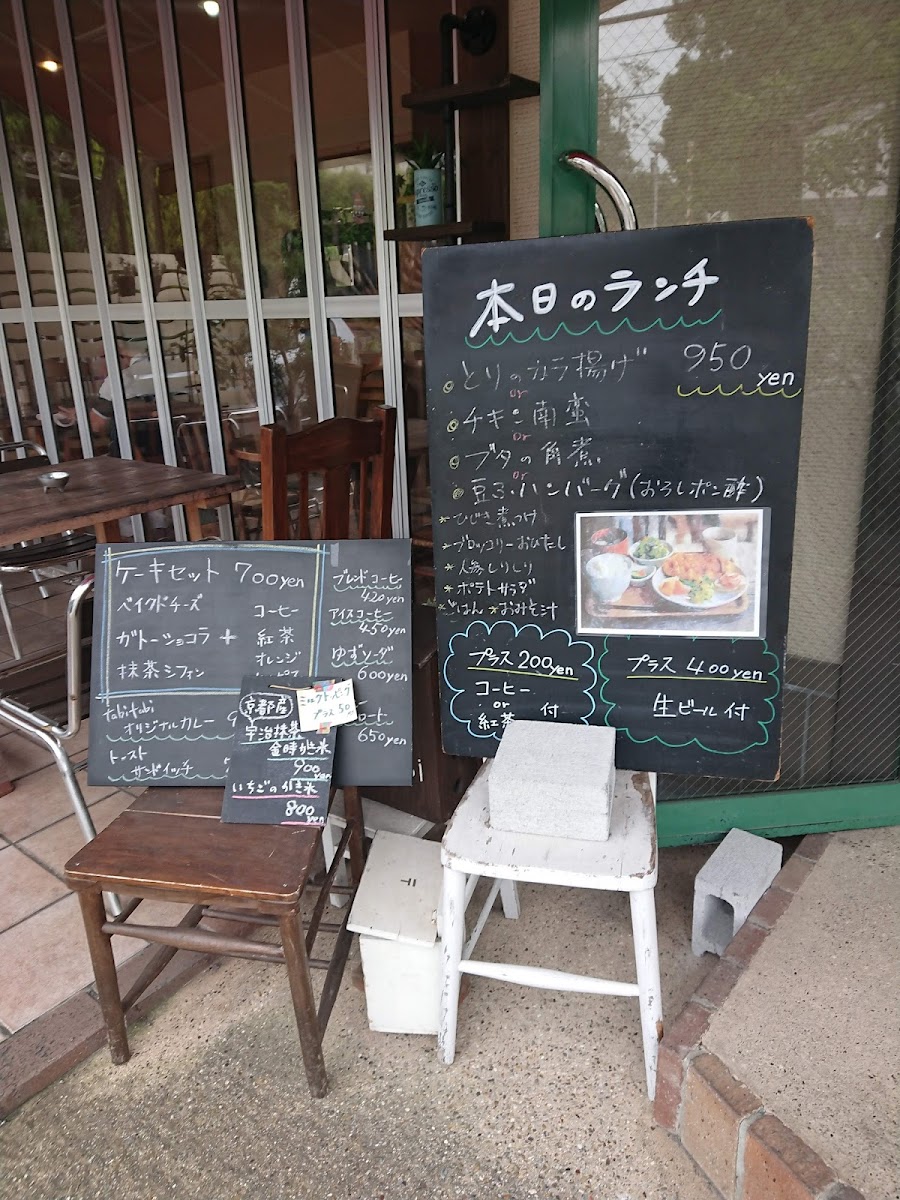 本日のランチ
950
yen
とりのカラ揚げ
or
チキン南蛮
or
ブタの角煮
or
豆ふハンバーグ(おろしポン酢)
*ひじき煮つけ
*ブロッコリーおひたし
*人参しりしり
*ポテトサラダ
*ごはん *おみそ汁
プラス200yen
コーヒー
or
紅茶
付
プラス 400yen
生ビール付
ケーキセット 700yen
ベイクドチーズ
ガトーショコラ
抹茶シフォン
+
コーヒー
紅茶
オレンジ
ブレンドコーヒー
420yen
アイスコーヒー
450yen
ゆずソーダ
600yen
650yen
tabitabi
オリジナルカレー 9
トースト
サンドイッチ
京都産
宇治抹茶
金時かき氷
900yen
いちごのかき氷
800yen
ミルクトッピング
プラス50
〒